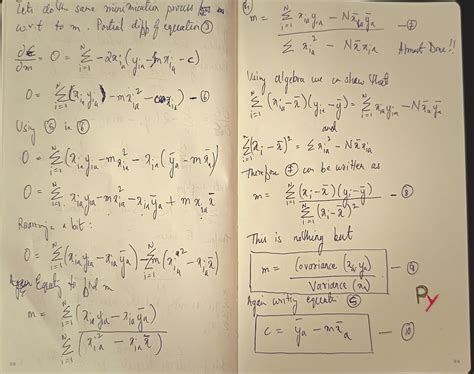 Lets do the same minimization process
w.r.t to m. Partial diff of equation ③
∂E/∂m = 0 = Σ_{i=1}^{N} -2x_{ia}(y_{ia} - m x_{ia} - c)
0 = Σ_{i=1}^{N} (x_{ia} y_{ia} - m x_{ia}^2 - c x_{ia}) - ⑥
Using ⑤ in ⑥
0 = Σ_{i=1}^{N} (x_{ia} y_{ia} - m x_{ia}^2 - x_{ia}(ȳ_a - m x̄_a))
0 = Σ_{i=1}^{N} x_{ia} y_{ia} - m x_{ia}^2 - x_{ia} ȳ_a + m x_{ia} x̄_a
a bit:
0 = Σ_{i=1}^{N} (x_{ia} y_{ia} - x_{ia} ȳ_a) - Σ_{i=1}^{N} m (x_{ia}^2 - x_{ia} x̄)
Again Equate to find m
m = Σ_{i=1}^{N} (x_{ia} y_{ia} - x_{ia} ȳ_a) / Σ_{i=1}^{N} (x_{ia}^2 - x_{ia} x̄)
m = Σ_{i=1}^{N} x_{ia} y_{ia} - N x̄_a ȳ_a / Σ x_{ia}^2 - N x̄ x̄_a - ⑦
Almost Done!!
Using algebra we can show that
Σ_{i=1}^{N} (x_{ia} - x̄)(y_{ia} - ȳ) = Σ x_{ia} y_{ia} - N x̄_a ȳ_a
and
Σ_{i=1}^{N} (x_i - x̄)^2 = Σ x_{ia}^2 - N x̄ x̄_a
Therefore ⑦ can be written as
m = Σ_{i=1}^{N} (x_i - x̄)(y_i - ȳ) / Σ_{i=1}^{N} (x_i - x̄)^2 - ⑧
This is nothing but
m = Covariance (x_a, y_a) / Variance (x_a) - ⑨
Again writing equation ⑤
c = ȳ_a - m x̄_a - ⑩
Py